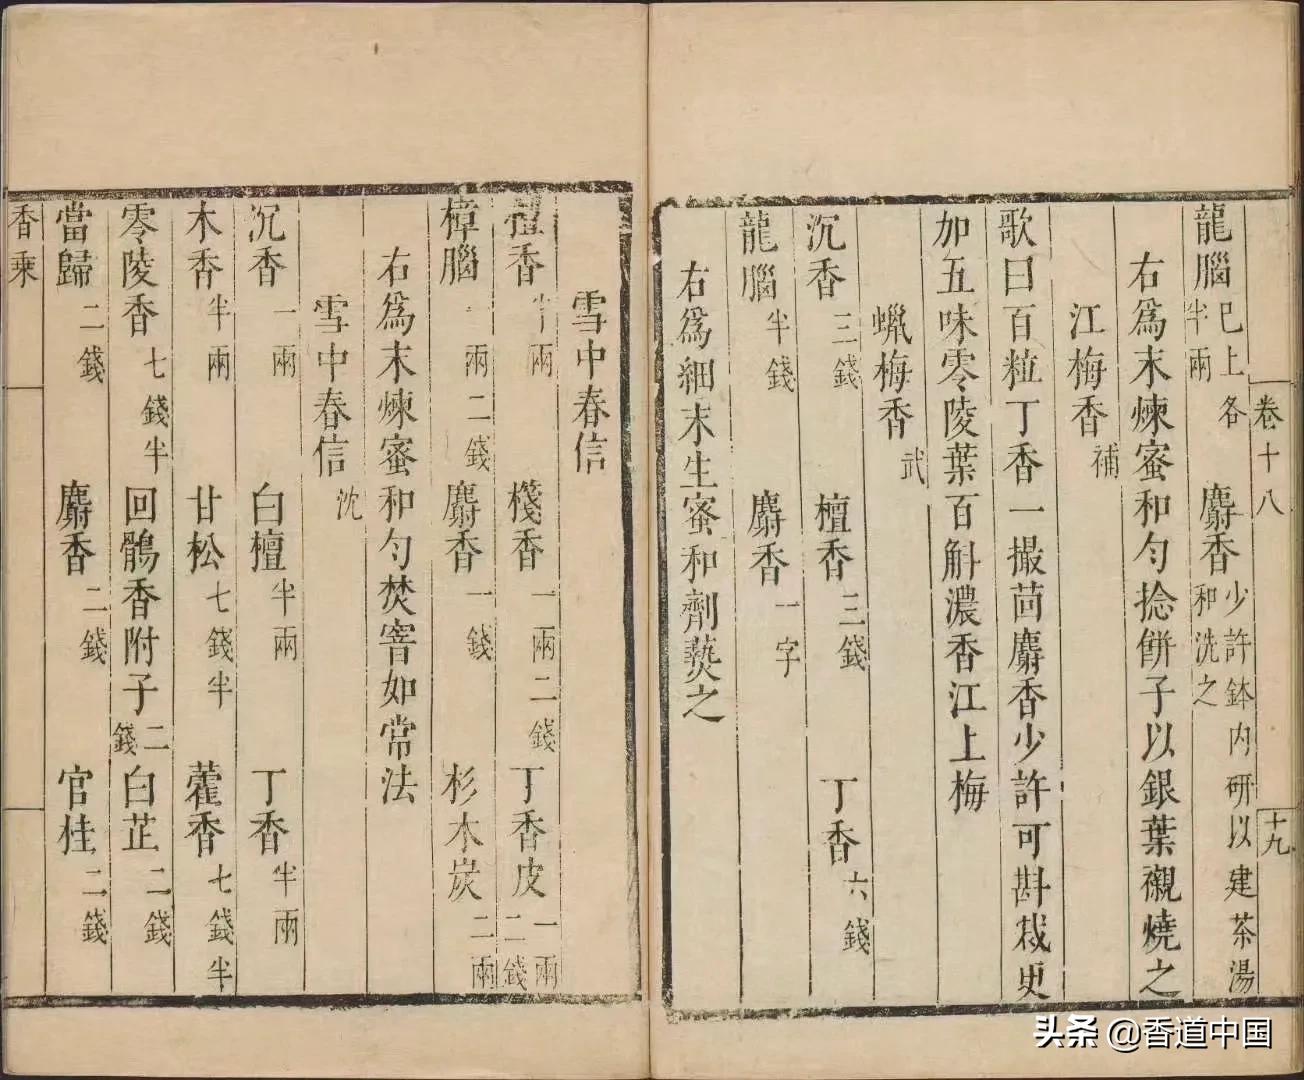 卷十八
十九
龍腦已上各半兩 麝香少許鉢内研以建茶湯和洗之
右為末煉蜜和勻捻餅子以銀葉襯燒之
江梅香補
歌曰百粒丁香一撮茴麝香少許可斟裁更
加五味零陵葉百斛濃香江上梅
蠟梅香武
沉香三錢 檀香三錢 丁香六錢
龍腦半錢 麝香一字
右為細末生蜜和劑爇之
雪中春信
檀香半兩 棧香一兩二錢 丁香皮一兩二錢
樟腦一兩二錢 麝香一錢 杉木炭二兩
右為末煉蜜和勻焚窨如常法
雪中春信沈
沉香一兩 白檀半兩 丁香半兩
木香半兩 甘松七錢半 藿香七錢半
零陵香七錢半 回鶻香附子二錢 白芷二錢
當歸二錢 麝香二錢 官桂二錢
香乘
头条 @香道中国